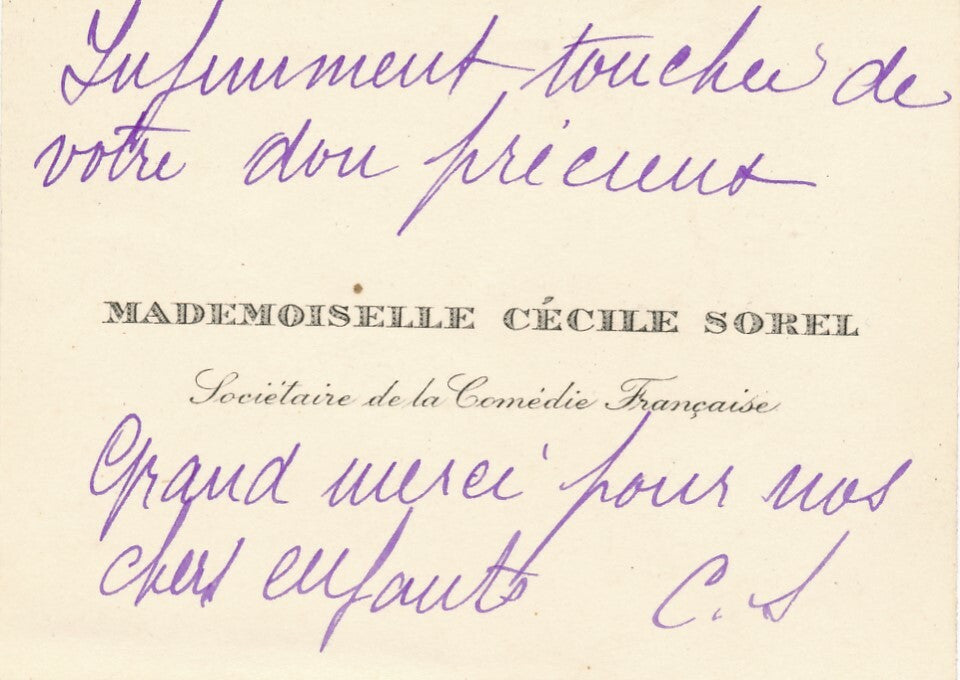 Infiniment touchée de
votre don précieux
MADEMOISELLE CÉCILE SOREL
Sociétaire de la Comédie Française
Grand merci pour nos
chers enfants C. S